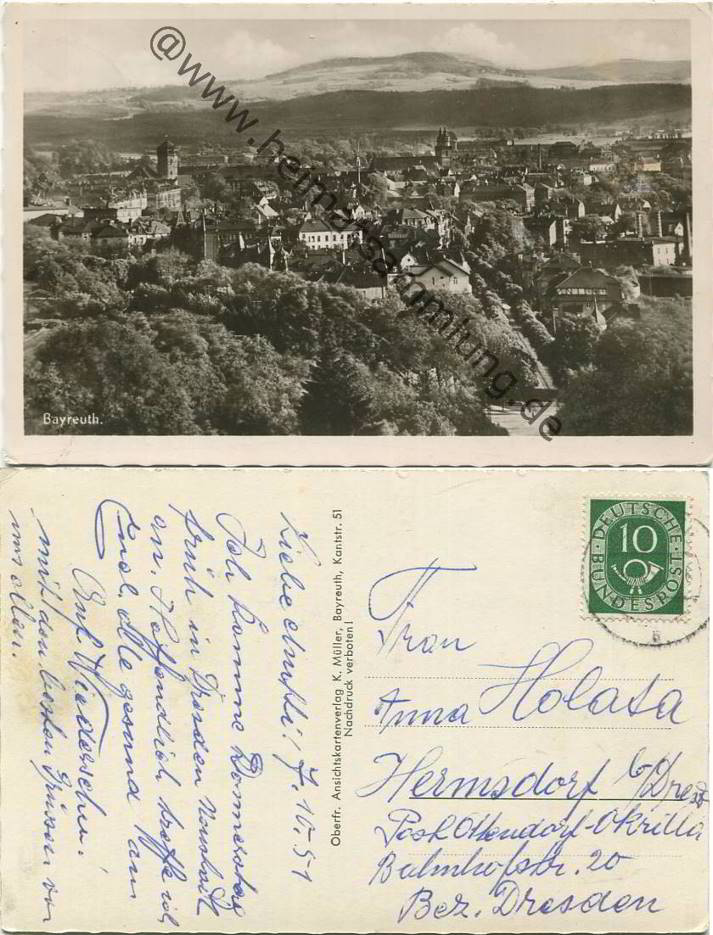 @www.heimatsammlung.de
Bayreuth.
Liebe Mutti! 7. 10. 51
Ich komme Donnerstag
früh in Dresden Neustadt
an. Hoffendlich treffe ich
Euch alle gesund an
Auf Wiedersehn!
mit den besten Grüssen von
uns allen.
Oberfr. Ansichtskartenverlag K. Müller, Bayreuth, Kantstr. 51
Nachdruck verboten!
DEUTSCHE
10
BUNDESPOST
Frau
Anna Holata
Hermsdorf b/Dresd
Post Ottendorf-Okrilla
Bahnhofstr. 20
Bez. Dresden